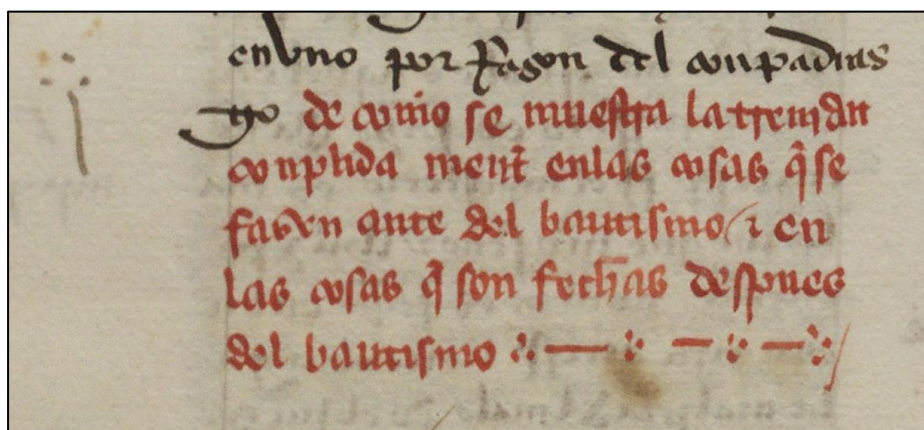 en vno por Razon del conpadraz
go de com̃o se muestra la trenidat
conplida ment̃ en las cosas q̃ se
fazen ante del bautismo ⁊ en
las cosas q̃ son fech̃as despues
del bautismo